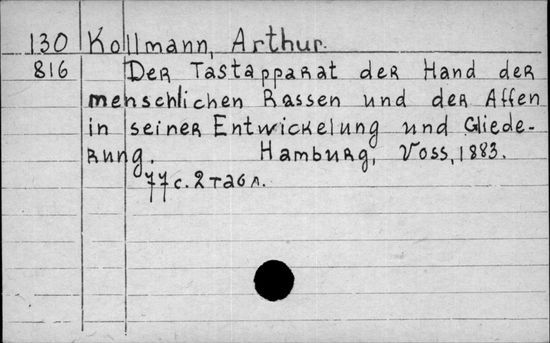 130 Kollmann, Arthur.
816 Der Tastapparat der Hand der
menschlichen Rassen und der Affen
in seiner Entwickelung und Gliede-
rung. Hamburg, Voss, 1883.
77 с. 2 табл.